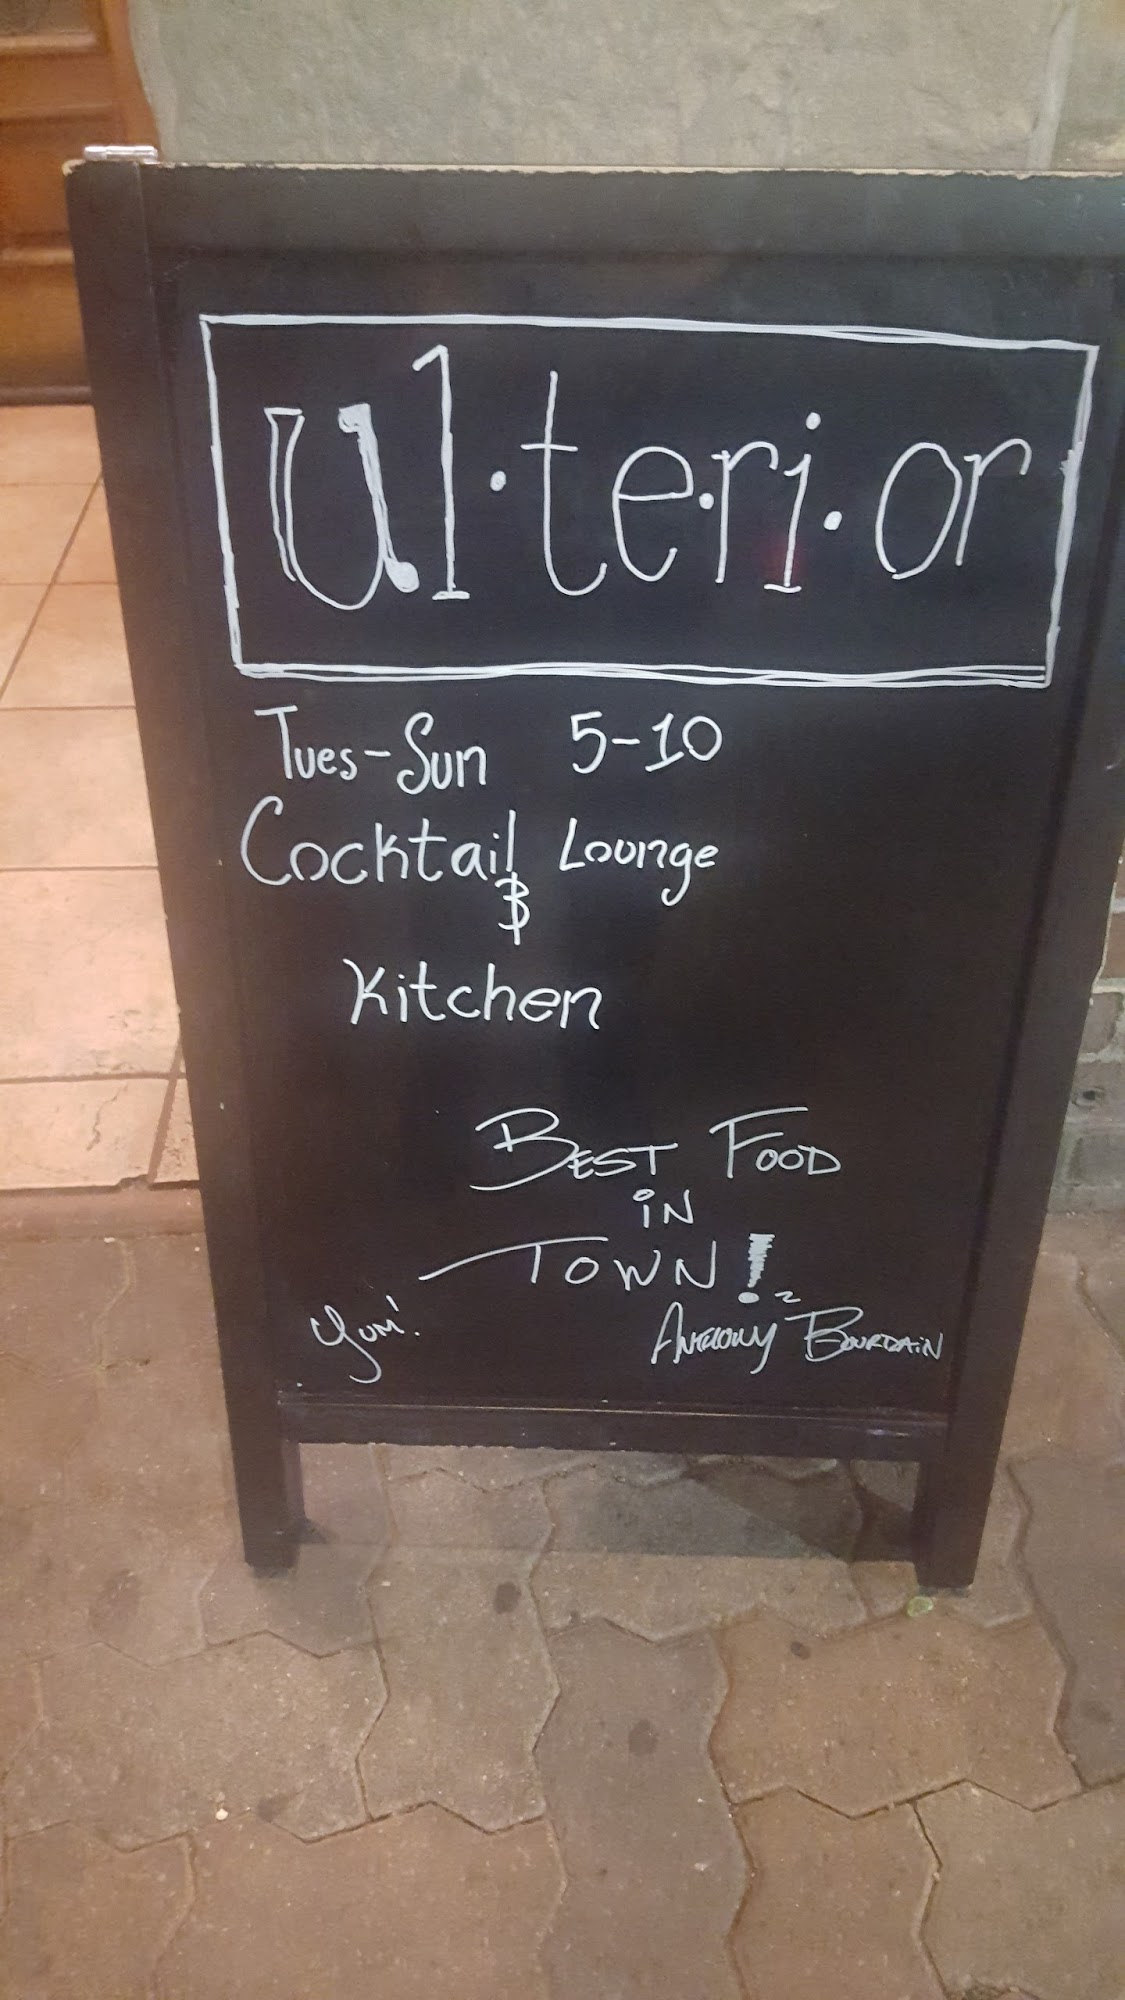 ul·te·ri·or
Tues-Sun 5-10
Cocktail Lounge
&
Kitchen
BEST FOOD
iN
TOWN!
Yum! ANTHONY BOURDAiN